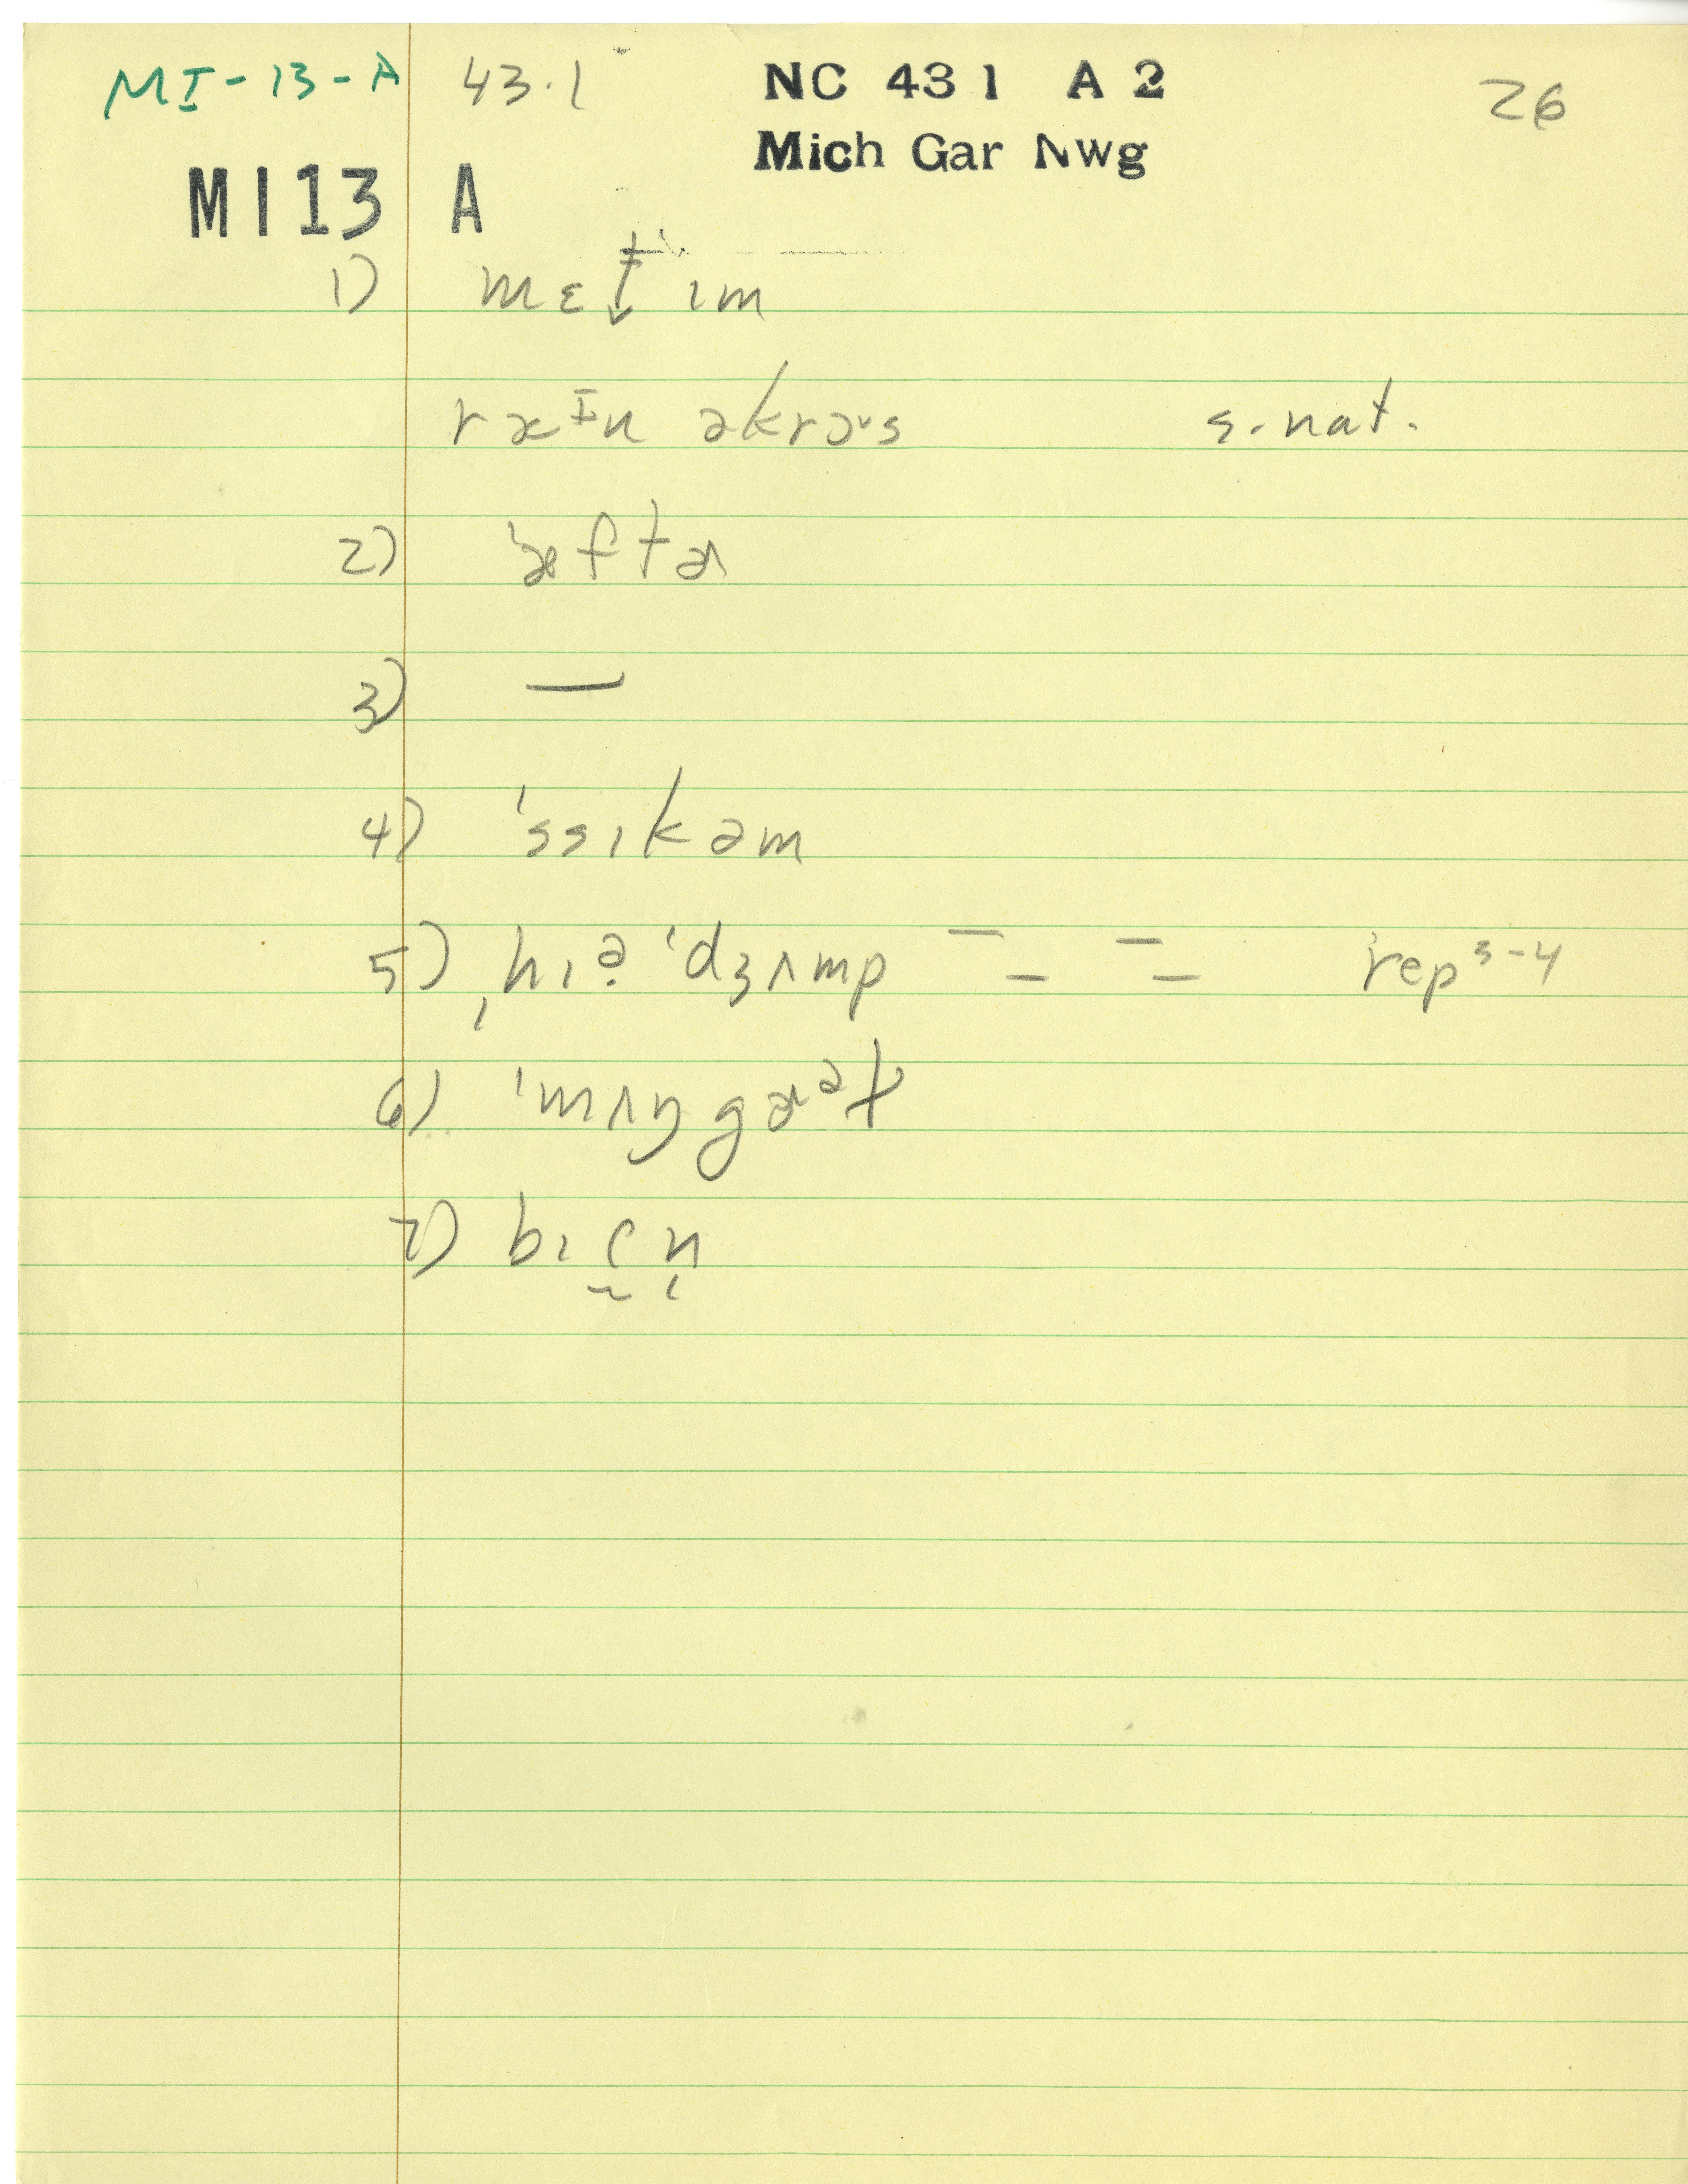 MI-13-A 43.1 NC 43 1 A 2 26
Mich Gar Nwg
MI13 A
1) mɛt̬ ɪm
ræɪn əkrɔs s. nat.
2) ˈæftɚ
3) —
4) ˈssɪkəm
5) ˌhɪə ˈdʒʌmp rep 3-4
6) ˈmʌŋgɚət
7) bɪ n̩